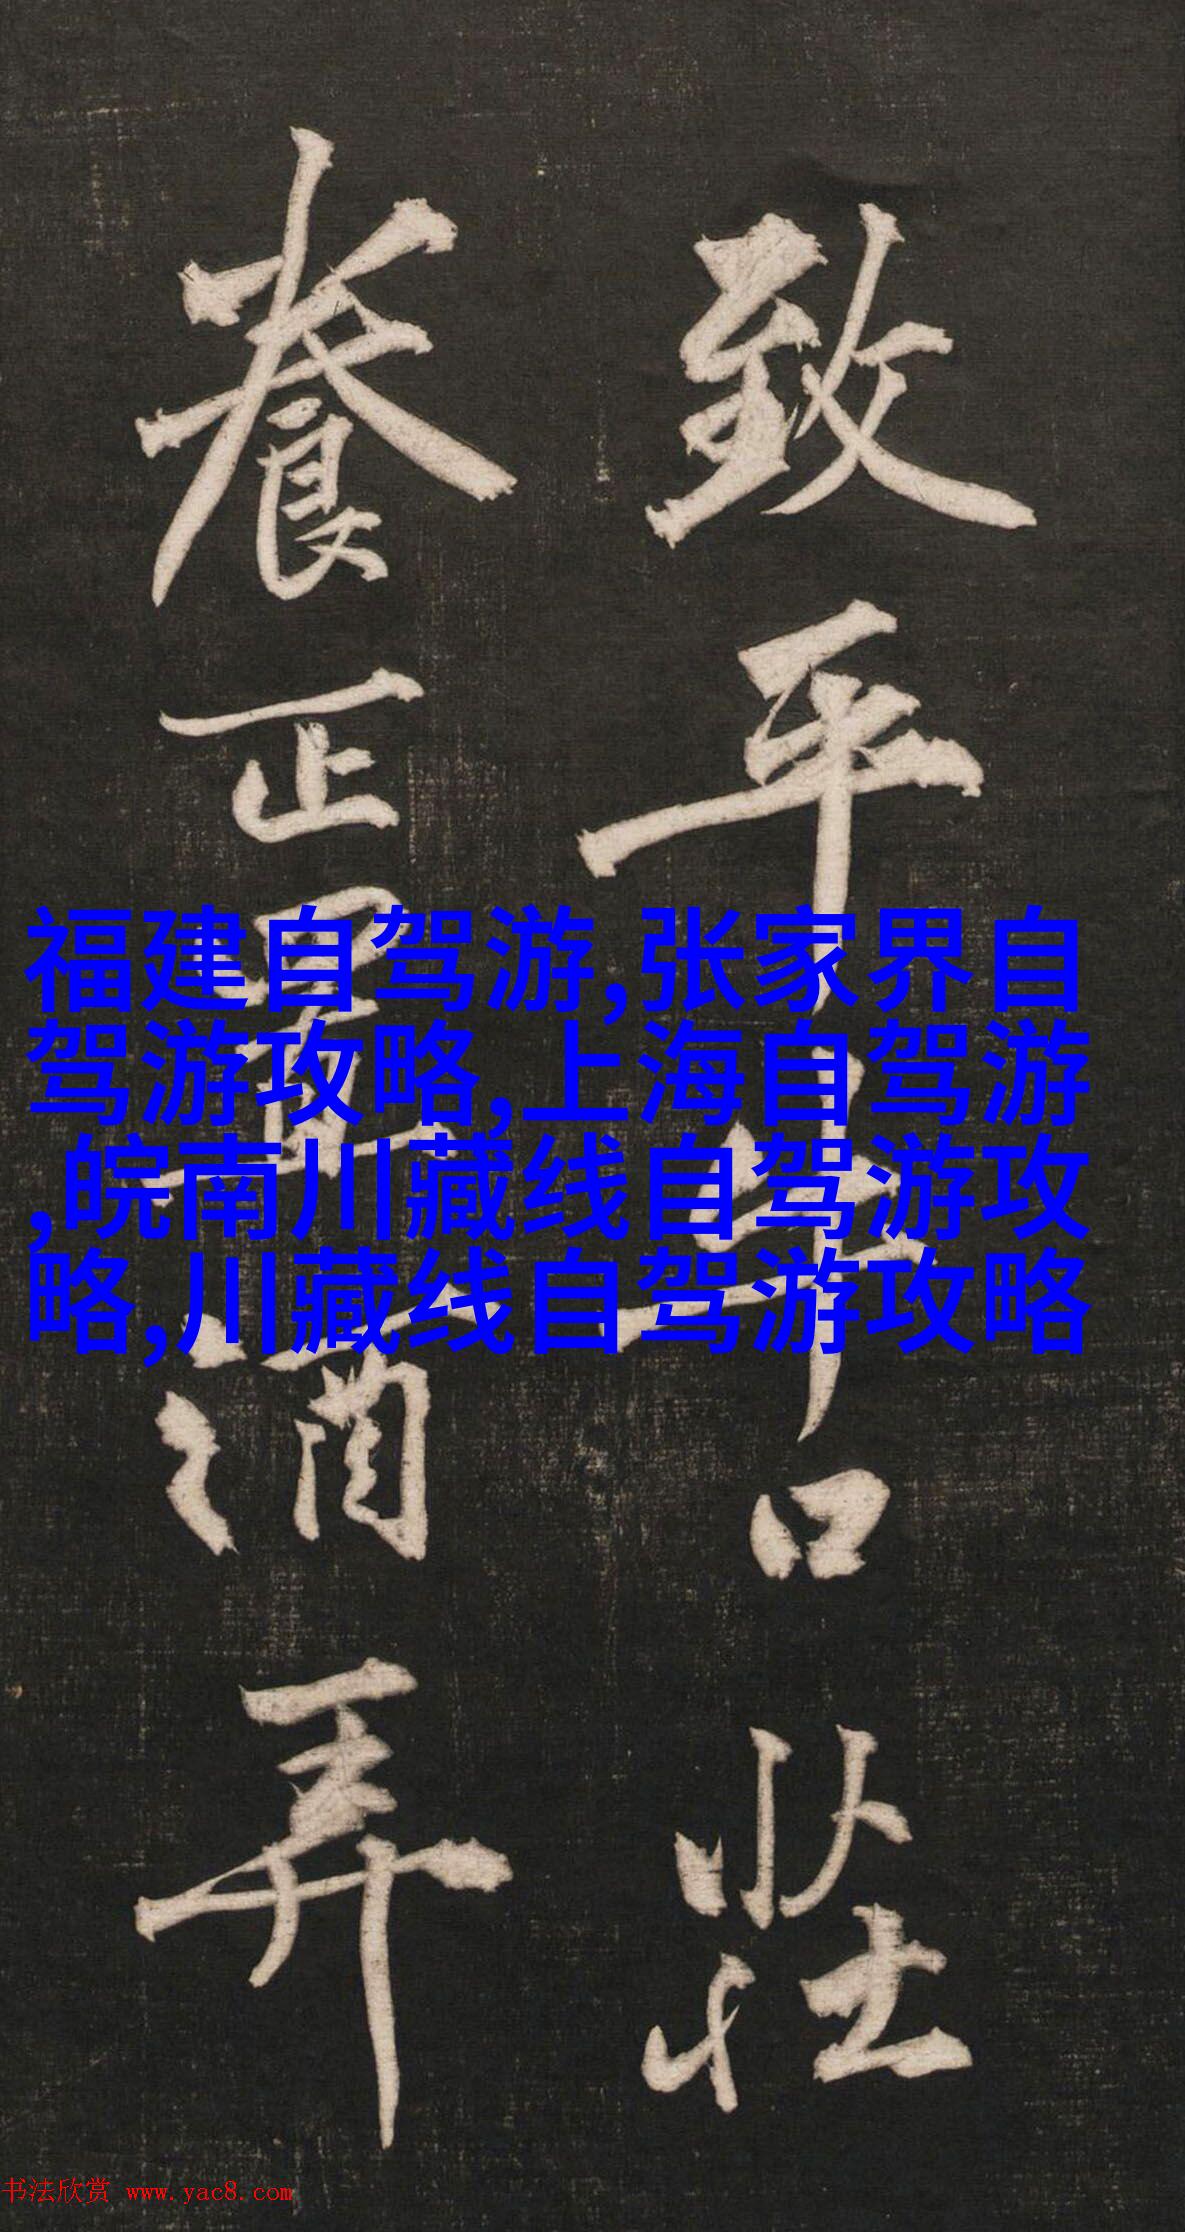 致平牛口莊
養正置酒弄
福建自驾游,张家界自
驾游攻略,上海自驾游
,皖南川藏线自驾游攻
略,川藏线自驾游攻略
书法欣赏 www.yac8.com